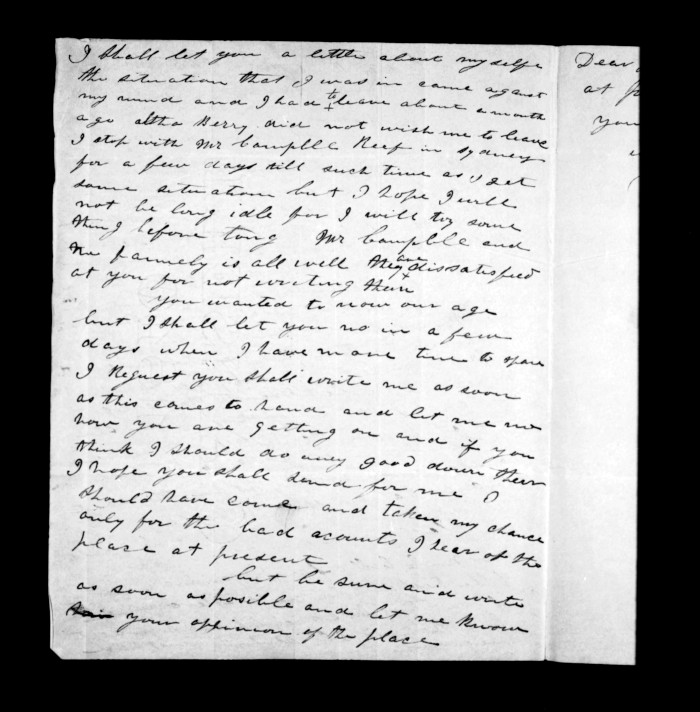 I Shall let you a little about my selfe
the situation that I was in came against
my mind and I had to leave about a month
ago altho Berry did not wish me to leave
I stop with Mr Campblle Keep in Sydney
for a few days till such time as I get
some situation but I hope I will
not be long idle for I will try some
thing before long Mr Campblle and
famely is all well they are dissatisfied
at you for not writing them
you wanted to now our age
but I Shall let you no in a few
days when I have more time to spare
I Request you Shall write me as soon
as this comes to hand and let me no
how you are getting on and if you
think I should do any good down ther
I hope you shall send for me I
should have come and taken my chance
only for the bad acounts I hear of the
place at present
but be sure and write
as soon as posible and let me know
your oppinion of the place
Dear
at
you